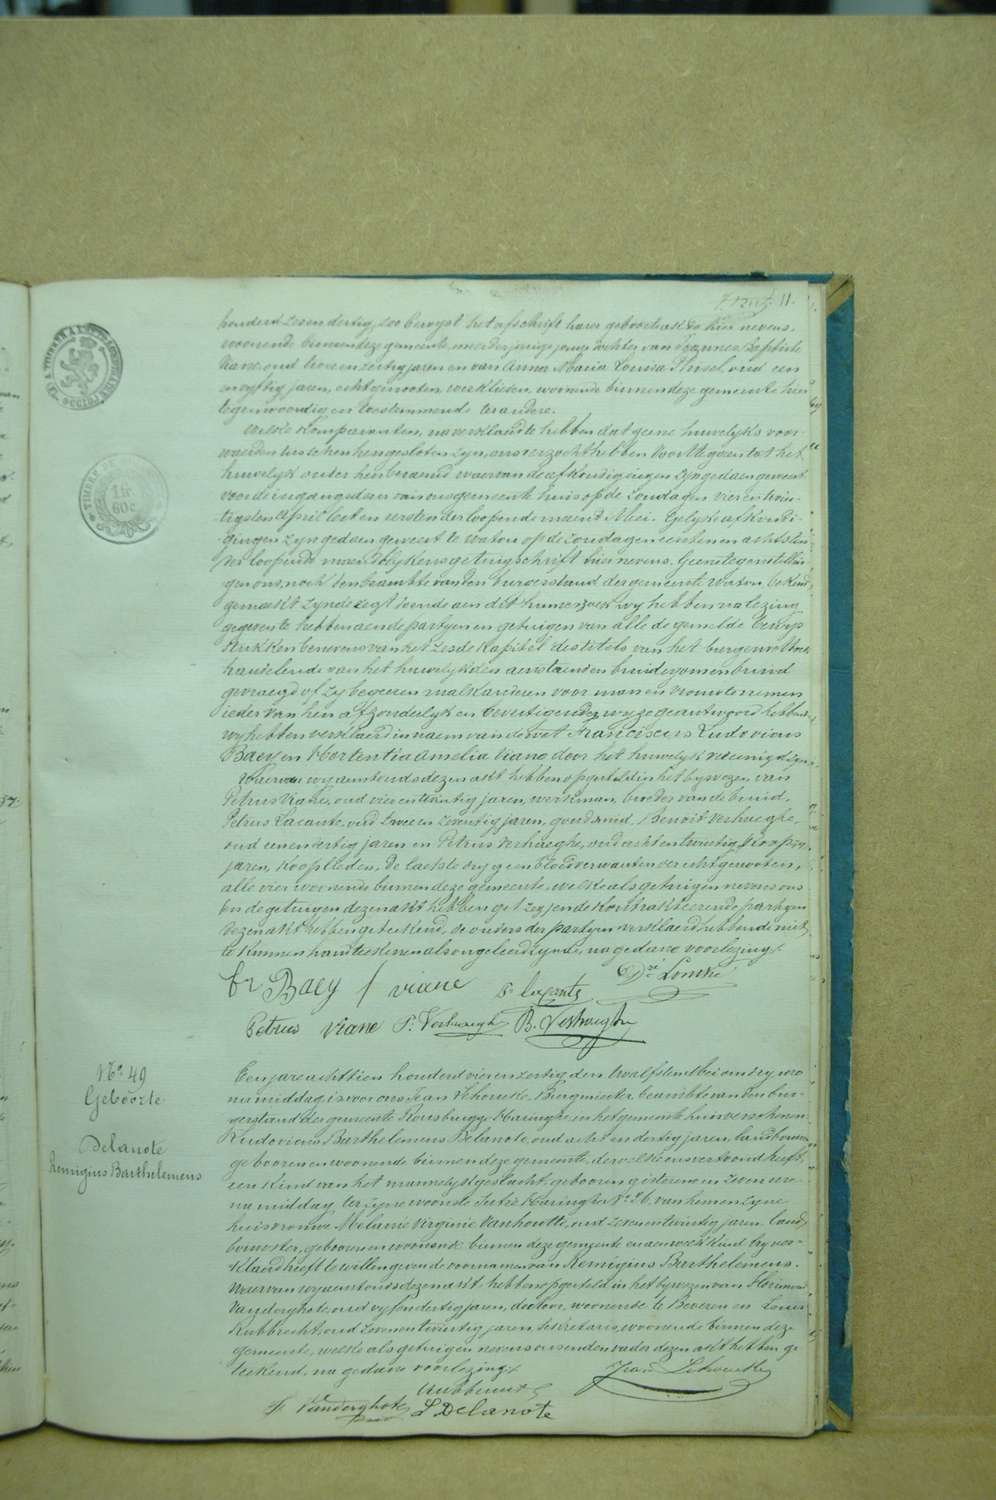 11.
honderd zeven dertig, zoo bewyst het afschrift harer geboorteakte hier nevens,
woonende binnen deze gemeente, meerderjarige jonge dochter van Joannes Baptiste
Viane, oud tweeenzestig jaren en van Anna Maria Louisa Plinsel, oud een
envyftig jaren, echtgenooten, werklieden, woonende binnen deze gemeente hier
tegenwoordig en toestemmende ter andere.
Welke komparanten, na verklaard te hebben dat geene huwelyks voor-
waerden tusschen hen gesloten zyn, ons verzocht hebben voorttegaen tot het
huwelyk onder hen beraemd waervan de afkondigingen zyn gedaen geweest
voor den ingang der van ons gemeentehuis op de zondagen vierentwin-
tigsten April lest en eersten der loopende maend Mei. Gelyke afkondi-
gingen zyn gedaen geweest te Watou op de zondagen eersten en achtsten
der loopende maend blykens getuigschrift hier nevens. Geene tegenstelling
gen ons, noch den beambte van den burgerstand der gemeente Watou bekend
gemaekt zynde regt doende aen dit hun verzoek wy hebben na lezing
gegeven te hebben aen de partyen en getuigen van alle de gemelde bewys
stukken benevens van het zesde kapitel des titels van het burgerwetboek
handelende van het huwelyk den aenstaenden bruidegom en bruid
gevraegd of zy begeeren malkanderen voor man en vrouw te nemen
ieder van hen afzonderlyk en bevestigender wyze geantwoord hebbende,
wy hebben verklaerd in naem van de wet Franciscus Ludovicus
Baey en Hortentia Amelia Viane door het huwelyk vereenigd zyn.
Waervan wy aenstonds dezen akt hebben opgesteld in het bywezen van
Petrus Viane, oud vierentwintig jaren, werkman, broeder van de bruid,
Petrus Lacante, oud tweeen zeventig jaren, goudsmid, Benoit Verhaeghe,
oud eenendertig jaren en Petrus Verhaeghe, oud achtentwintig
jaren, kooplieden, de laetste dry geen bloedverwanten der echtgenooten,
alle vier woonende binnen deze gemeente, welke als getuigen nevens ons
en de getuigen dezen akt hebben geteekend, de ouders der partyen verklaerd hebbende niet
te kunnen handteekenen als ongeleerd zynde, na gedane voorlezing.
fr Baey h viane P. lacante
Petrus Viane P. Verhaeghe B. Verhaeghe
No. 49
Geboorte
Delanote
Remigius Barthelemeus
Een jare achttien honderd vierenzestig den twaelfsten Mei om dry uren
na middag, is voor ons Jean Lehoucke Burgmeester beambte van den bur-
gerstand der gemeente Rousbrugge Haringhe in het gemeentehuis verschenen
Ludovicus Barthelemeus Delanote, oud acht en dertig jaren, landbouwer
geboren en woonende binnen deze gemeente, dewelke ons vertoond heeft
een kind van het mannelyk geslacht, geboren gisteren en zeven uren
na middag, ter zyne woonste Sectie Haringhe No. 26, van hem en zyne
huisvrouw Melanie Virginie Vanhoutte, oud zevenentwintig jaren land-
bouwster, geboren en woonende binnen deze gemeente en aen welk kind hy ver-
klaerd heeft te willen geven de voornamen van Remigius Barthelemeus.
Waervan wy aenstonds dezen akt hebben opgesteld in het bywezen van Florimond
Vanderghote, oud vyfendertig jaren, doctoor, woonende te Beveren en Louis
Rubbrecht, oud zevenentwintig jaren Sekretaris, woonende binnen deze
gemeente, welke als getuigen nevens ons en den vader dezen akt hebben ge
teekend, na gedane voorlezing.
Jean Lehoucke
F Vanderghote L Delanote